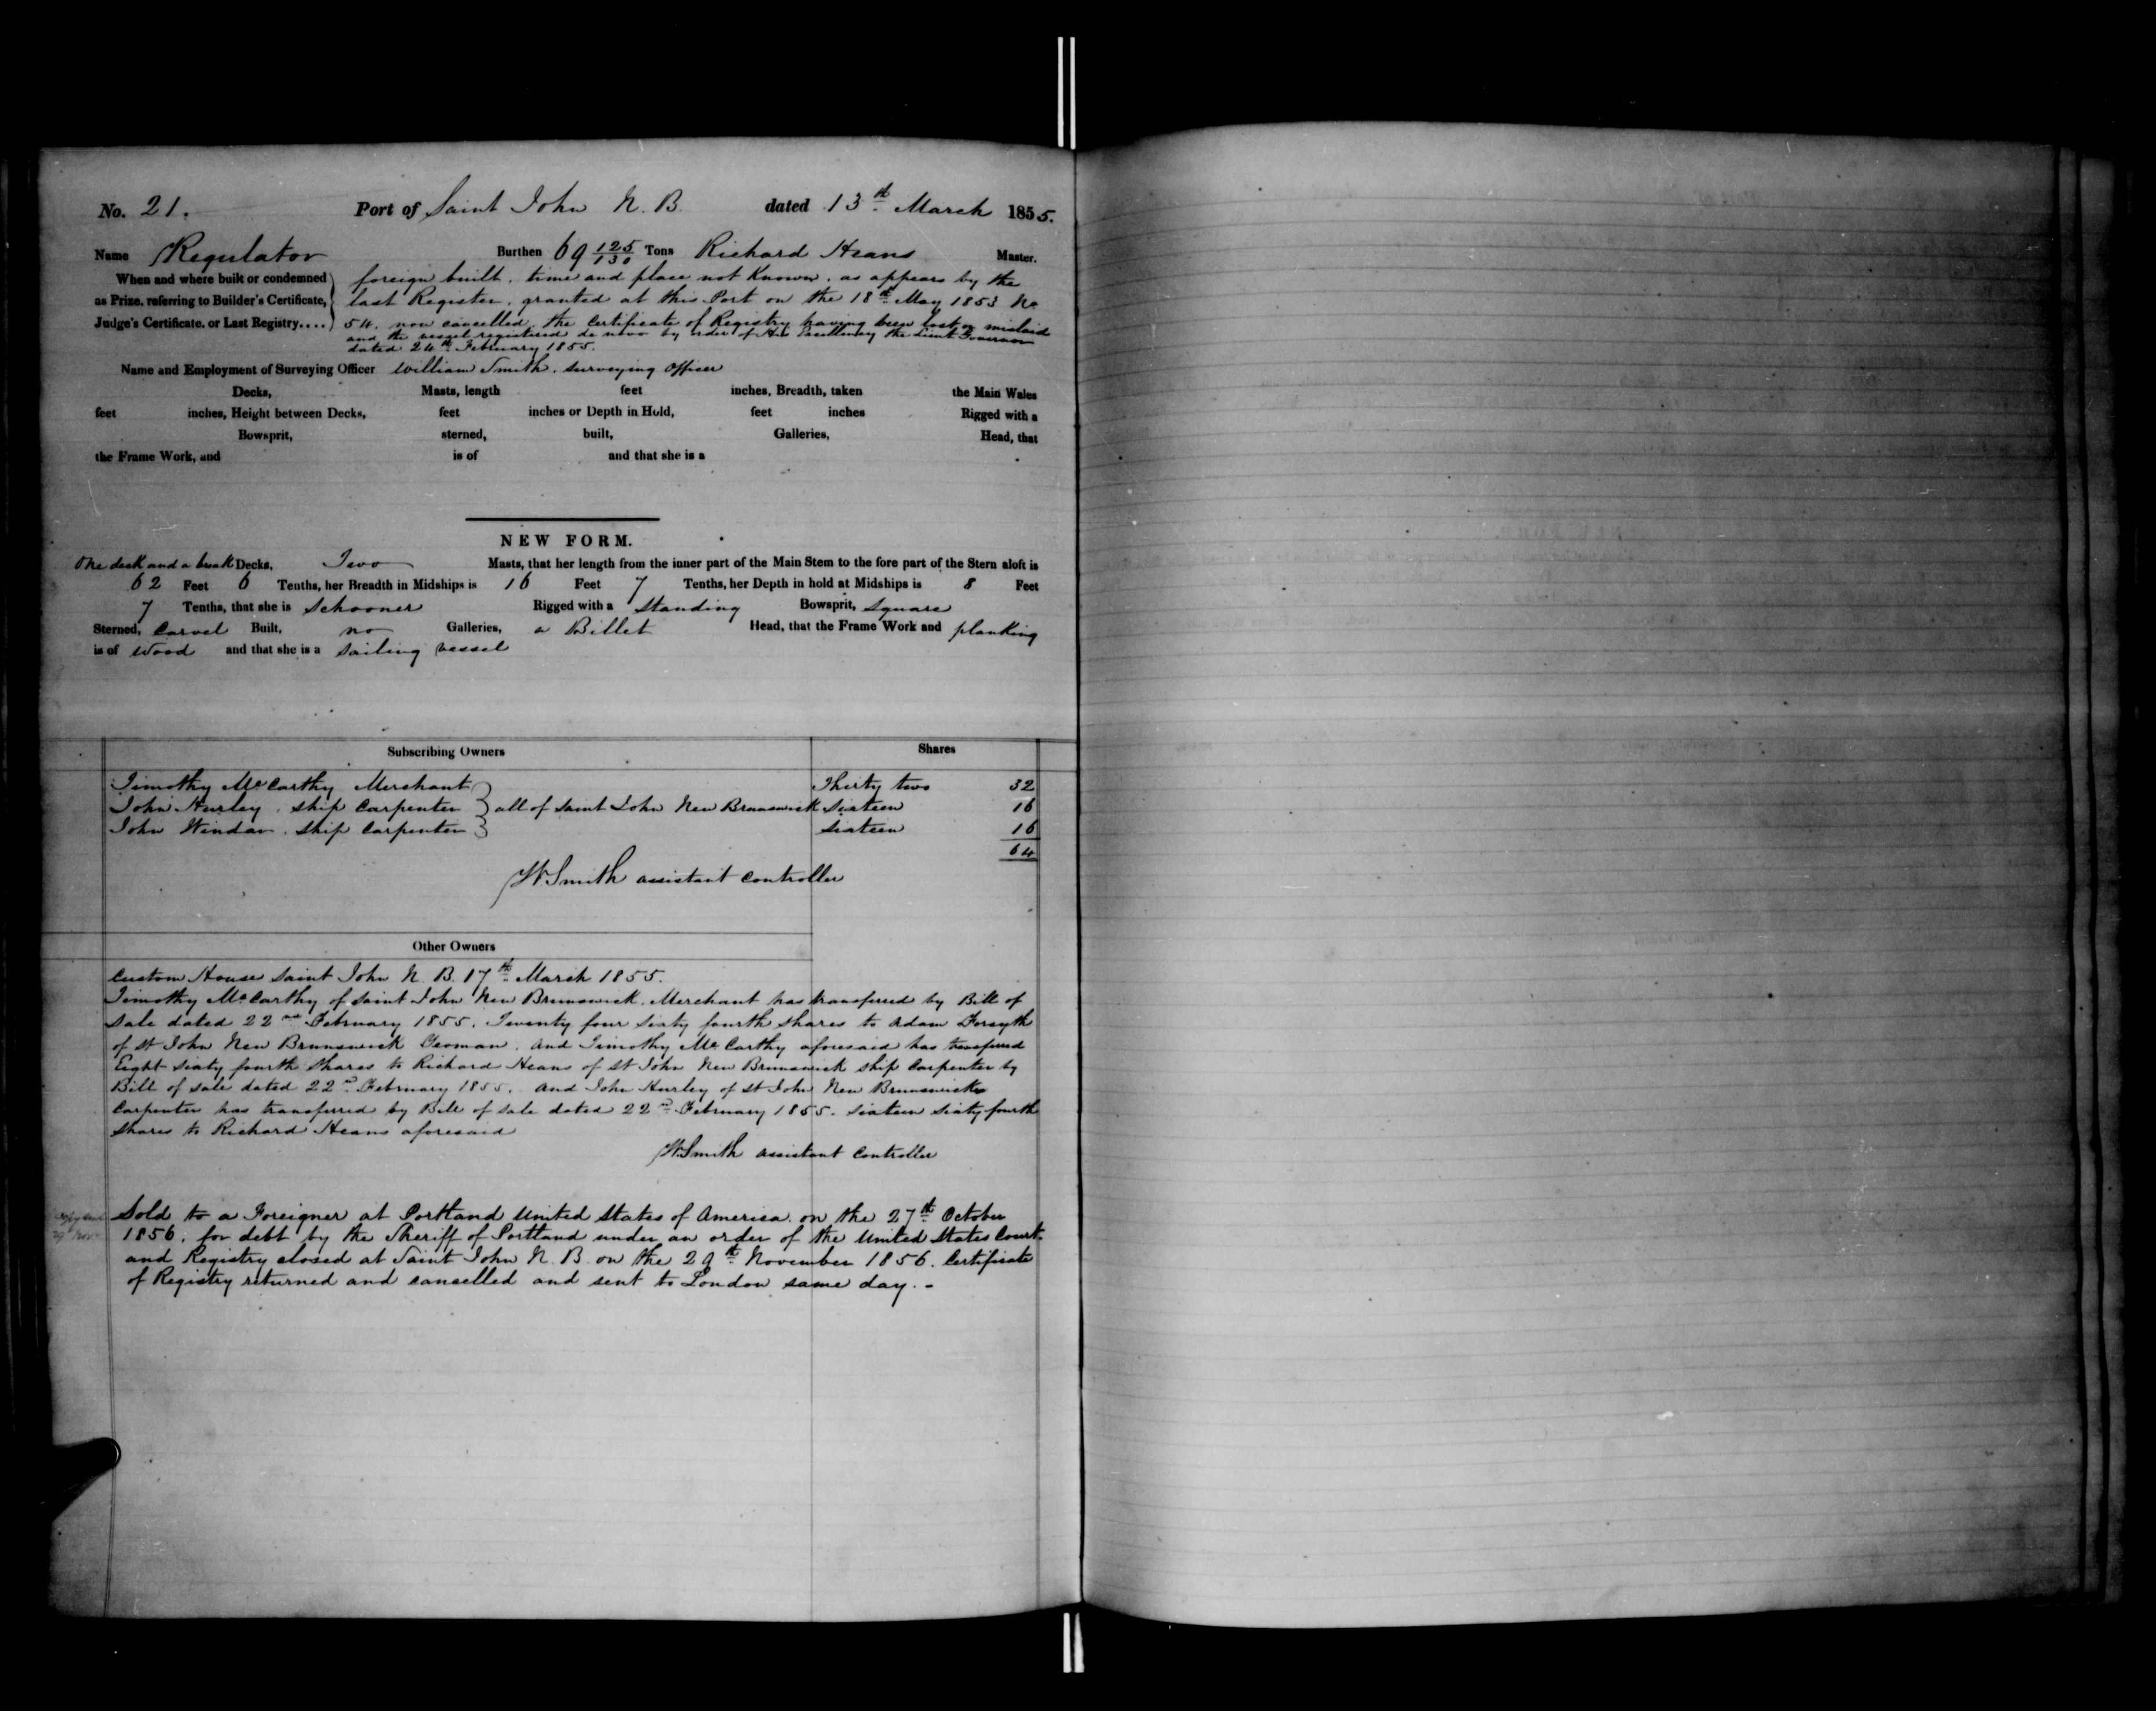 No. 21. Port of Saint John N. B. dated 13th March 1855.
Name Regulator Burthen 69 125/130 Tons Richard Heans Master.
When and where built or condemned as Prize, referring to Builder's Certificate, Judge's Certificate, or Last Registry....
foreign built, time and place not Known, as appears by the
last Register, granted at this Port on the 18th May 1853 No
54. now cancelled, the Certificate of Registry having been lost or mislaid
and the vessel registered de novo by order of His Excellency the Lieut Governor
dated 24th February 1855.
Name and Employment of Surveying Officer William Smith, surveying officer
Decks, Masts, length feet inches, Breadth, taken the Main Wales
feet inches, Height between Decks, feet inches or Depth in Hold, feet inches Rigged with a
Bowsprit, sterned, built, Galleries, Head, that
the Frame Work, and is of and that she is a
NEW FORM.
One deck and a break Decks, Two Masts, that her length from the inner part of the Main Stem to the fore part of the Stern aloft is
62 Feet 6 Tenths, her Breadth in Midships is 16 Feet 7 Tenths, her Depth in hold at Midships is 8 Feet
7 Tenths, that she is Schooner Rigged with a standing Bowsprit, square
Sterned, Carvel Built, no Galleries, a Billet Head, that the Frame Work and planking
is of Wood and that she is a sailing vessel
Subscribing Owners Shares
Timothy McCarthy Merchant Thirty two 32
John Hurley, ship Carpenter all of Saint John New Brunswick Sixteen 16
John Windam, ship Carpenter Sixteen 16
64
W Smith assistant Controller
Other Owners
Custom House Saint John N. B. 17th March 1855.
Timothy McCarthy of Saint John New Brunswick, Merchant has transferred by Bill of
Sale dated 22nd February 1855. Twenty four sixty fourth shares to Adam Forsyth
of St John New Brunswick Yeoman, and Timothy McCarthy aforesaid has transferred
Eight sixty fourth shares to Richard Heans of St John New Brunswick ship Carpenter by
Bill of sale dated 22nd February 1855. And John Hurley of St John New Brunswick
Carpenter has transferred by Bill of sale dated 22nd February 1855. sixteen sixty fourth
shares to Richard Heans aforesaid
W Smith assistant Controller
Copy sent
29th Novr
Sold to a Foreigner at Portland United States of America on the 27th October
1856. for debt by the Sheriff of Portland under an order of the United States Court
and Registry closed at Saint John N. B. on the 29th November 1856. Certificate
of Registry returned and cancelled and sent to London same day. -